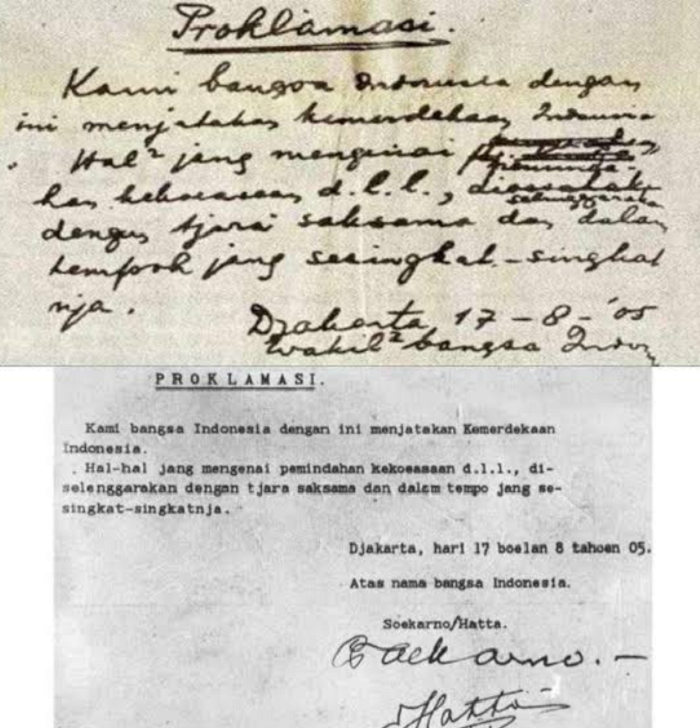 Proklamasi.
Kami bangsa Indonesia dengan
ini menjatakan kemerdekaan Indonesia
Hal² jang mengenai
kan kekoeasaan d.l.l., diselenggarakan
dengan tjara saksama dan dalam
tempoh jang sesingkat-singkat
nja.
Djakarta 17-8-'05
Wakil² bangsa Indon
PROKLAMASI.
Kami bangsa Indonesia dengan ini menjatakan Kemerdekaan
Indonesia.
Hal-hal jang mengenai pemindahan kekoeasaan d.l.l., di-
selenggarakan dengan tjara saksama dan dalem tempo jang se-
singkat-singkatnja.
Djakarta, hari 17 boelan 8 tahoen 05.
Atas nama bangsa Indonesia.
Soekarno/Hatta.
Soekarno.-
Hatta